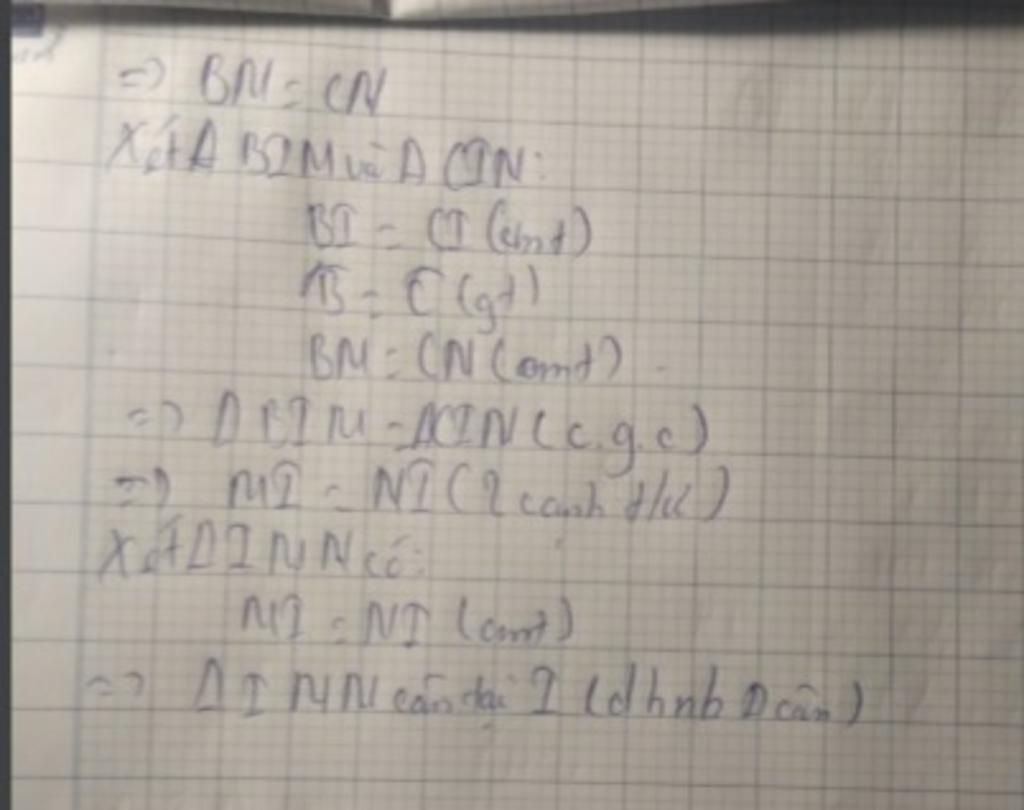 => BM = CN
Xét Δ BIM và Δ CIN:
BI = CI (cmt)
B̂ = Ĉ (gt)
BM = CN (cmt)
=> Δ BIM = ΔCIN (c.g.c)
=> MI = NI (2 cạnh t/ư)
Xét Δ IMN có:
MI = NI (cmt)
=> Δ IMN cân tại I (dhnb Δ cân)